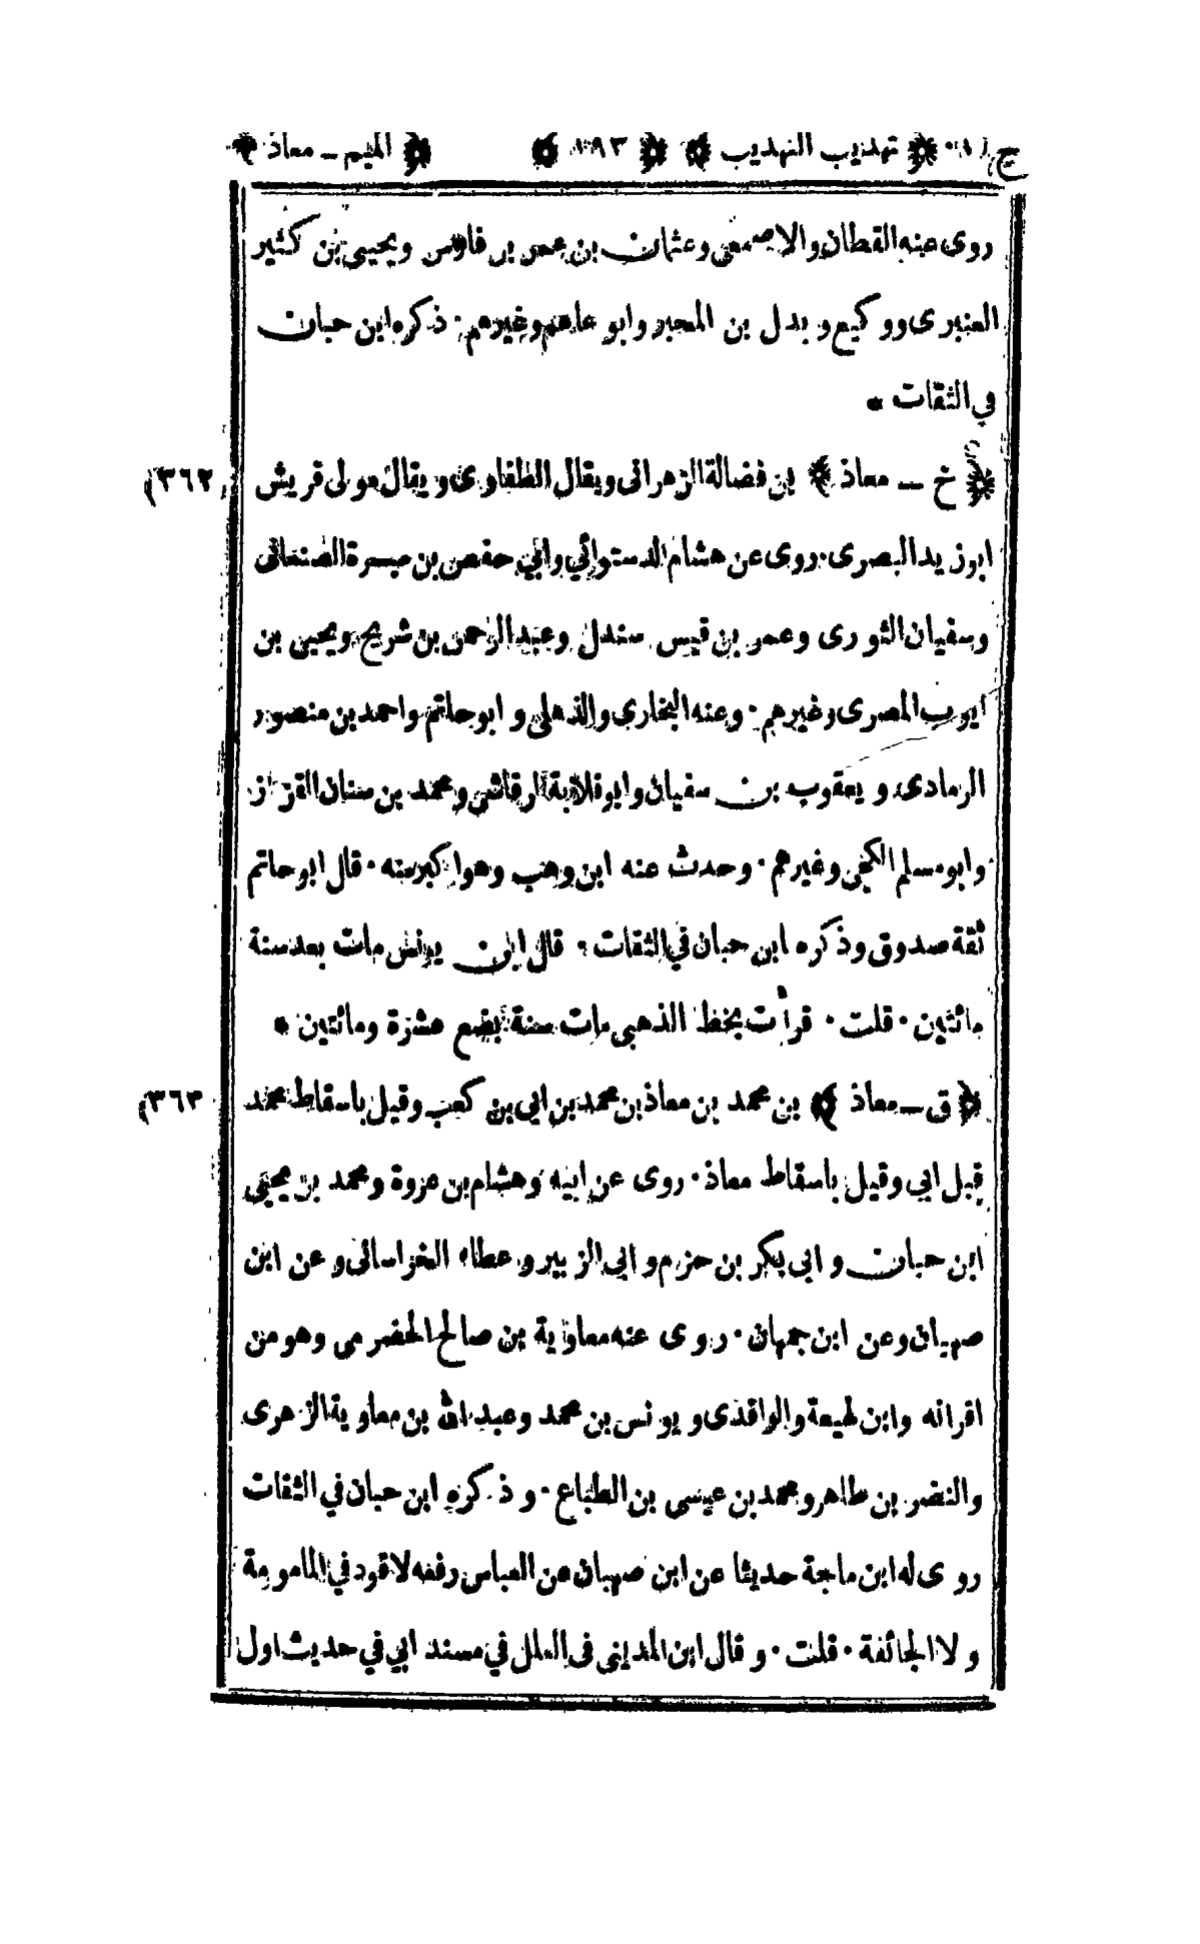 ج (١٠) ﴿ تهذيب التهذيب ﴾ ﴿ ١٩٣ ﴾ ﴿ الميم ــ معاذ ﴾
روى عنه القطان والاصمعي وعثمان بن عمر بن فارس ويحيى بن كثير
العنبرى ووكيع وبدل بن المحبر وابو عاصم وغيرهم · ذكره ابن حبان
في الثقات *
﴿ خ ــ معاذ ﴾ بن فضالة الزهرانى ويقال الطفاوى ويقال مولى قريش (٣٦٢)
ابوزيد البصرى · روى عن هشام الدستوائي وابي حفص بن ميسرة الصنعانى
وسفيان الثورى وعمر بن قيس سندل وعبد الرحمن بن شريح ويحيى بن
ايوب المصرى وغيرهم · وعنه البخاري والذهلى وابو حاتم واحمد بن منصور
الرمادى ويعقوب بن سفيان وابو قلابة الرقاشي ومحمد بن سنان القزاز
وابو مسلم الكجى وغيرهم · وحدث عنه ابن وهب وهو اكبر منه · قال ابو حاتم
ثقة صدوق وذكره ابن حبان في الثقات · قال ابن يونس مات بعد سنة
مائتين · قلت · قرأت بخط الذهبى مات سنة بضع عشرة ومائتين *
﴿ ق ــ معاذ ﴾ بن محمد بن معاذ بن محمد بن ابي بن كعب وقيل باسقاط محمد (٣٦٣)
قبل ابي وقيل باسقاط معاذ · روى عن ابيه وهشام بن عروة ومحمد بن يحيى
ابن حبان وابى بكر بن حزم وابي الزبير وعطاء الخراسانى وعن ابن
صهبان وعن ابن جمهان · روى عنه معاوية بن صالح الحضرمى وهو من
اقرانه وابن لهيعة والواقدى ويونس بن محمد وعبد الله بن معاوية الزهرى
والنضر بن طاهر ومحمد بن عيسى بن الطباع · وذكره ابن حبان في الثقات
روى له ابن ماجة حديثا عن ابن صهبان عن العباس رفعه لا قود في المامومة
ولا الجائفة · قلت · وقال ابن المدينى فى العلل في مسند ابي في حديث اول